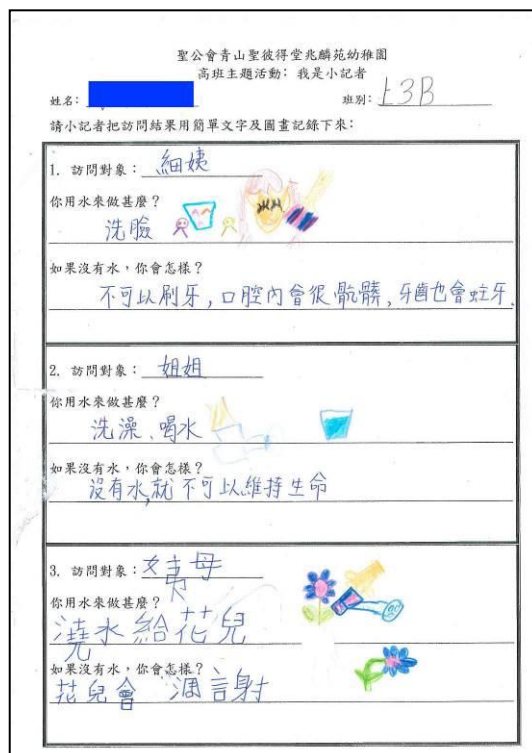 聖公會青山聖彼得堂兆麟苑幼稚園
高班主題活動：我是小記者
姓名：
班別：K3B
請小記者把訪問結果用簡單文字及圖畫記錄下來：
1. 訪問對象：細姨
你用水來做甚麼？
洗臉
如果沒有水，你會怎樣？
不可以刷牙，口腔內會很骯髒，牙齒也會蛀牙。
2. 訪問對象：姐姐
你用水來做甚麼？
洗澡、喝水
如果沒有水，你會怎樣？
沒有水，就不可以維持生命
3. 訪問對象：姨母
你用水來做甚麼？
澆水給花兒
如果沒有水，你會怎樣？
花兒會凋謝